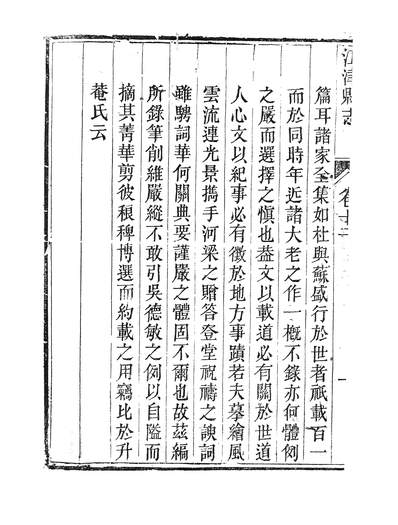 江津縣志
卷十二
一
篇耳諸家全集如杜與蘇盛行於世者祇載百一
而於同時年近諸大老之作一槪不錄亦何體例
之嚴而選擇之愼也葢文以載道必有關於世道
人心文以紀事必有徵於地方事蹟若夫摹繪風
雲流連光景攜手河梁之贈答登堂祝禱之諛詞
雖騁詞華何關典要謹嚴之體固不爾也故茲編
所錄筆削維嚴縱不敢引吳德敏之例以自隘而
摘其菁華剪彼稂稗博選而約載之用竊比於升
菴氏云